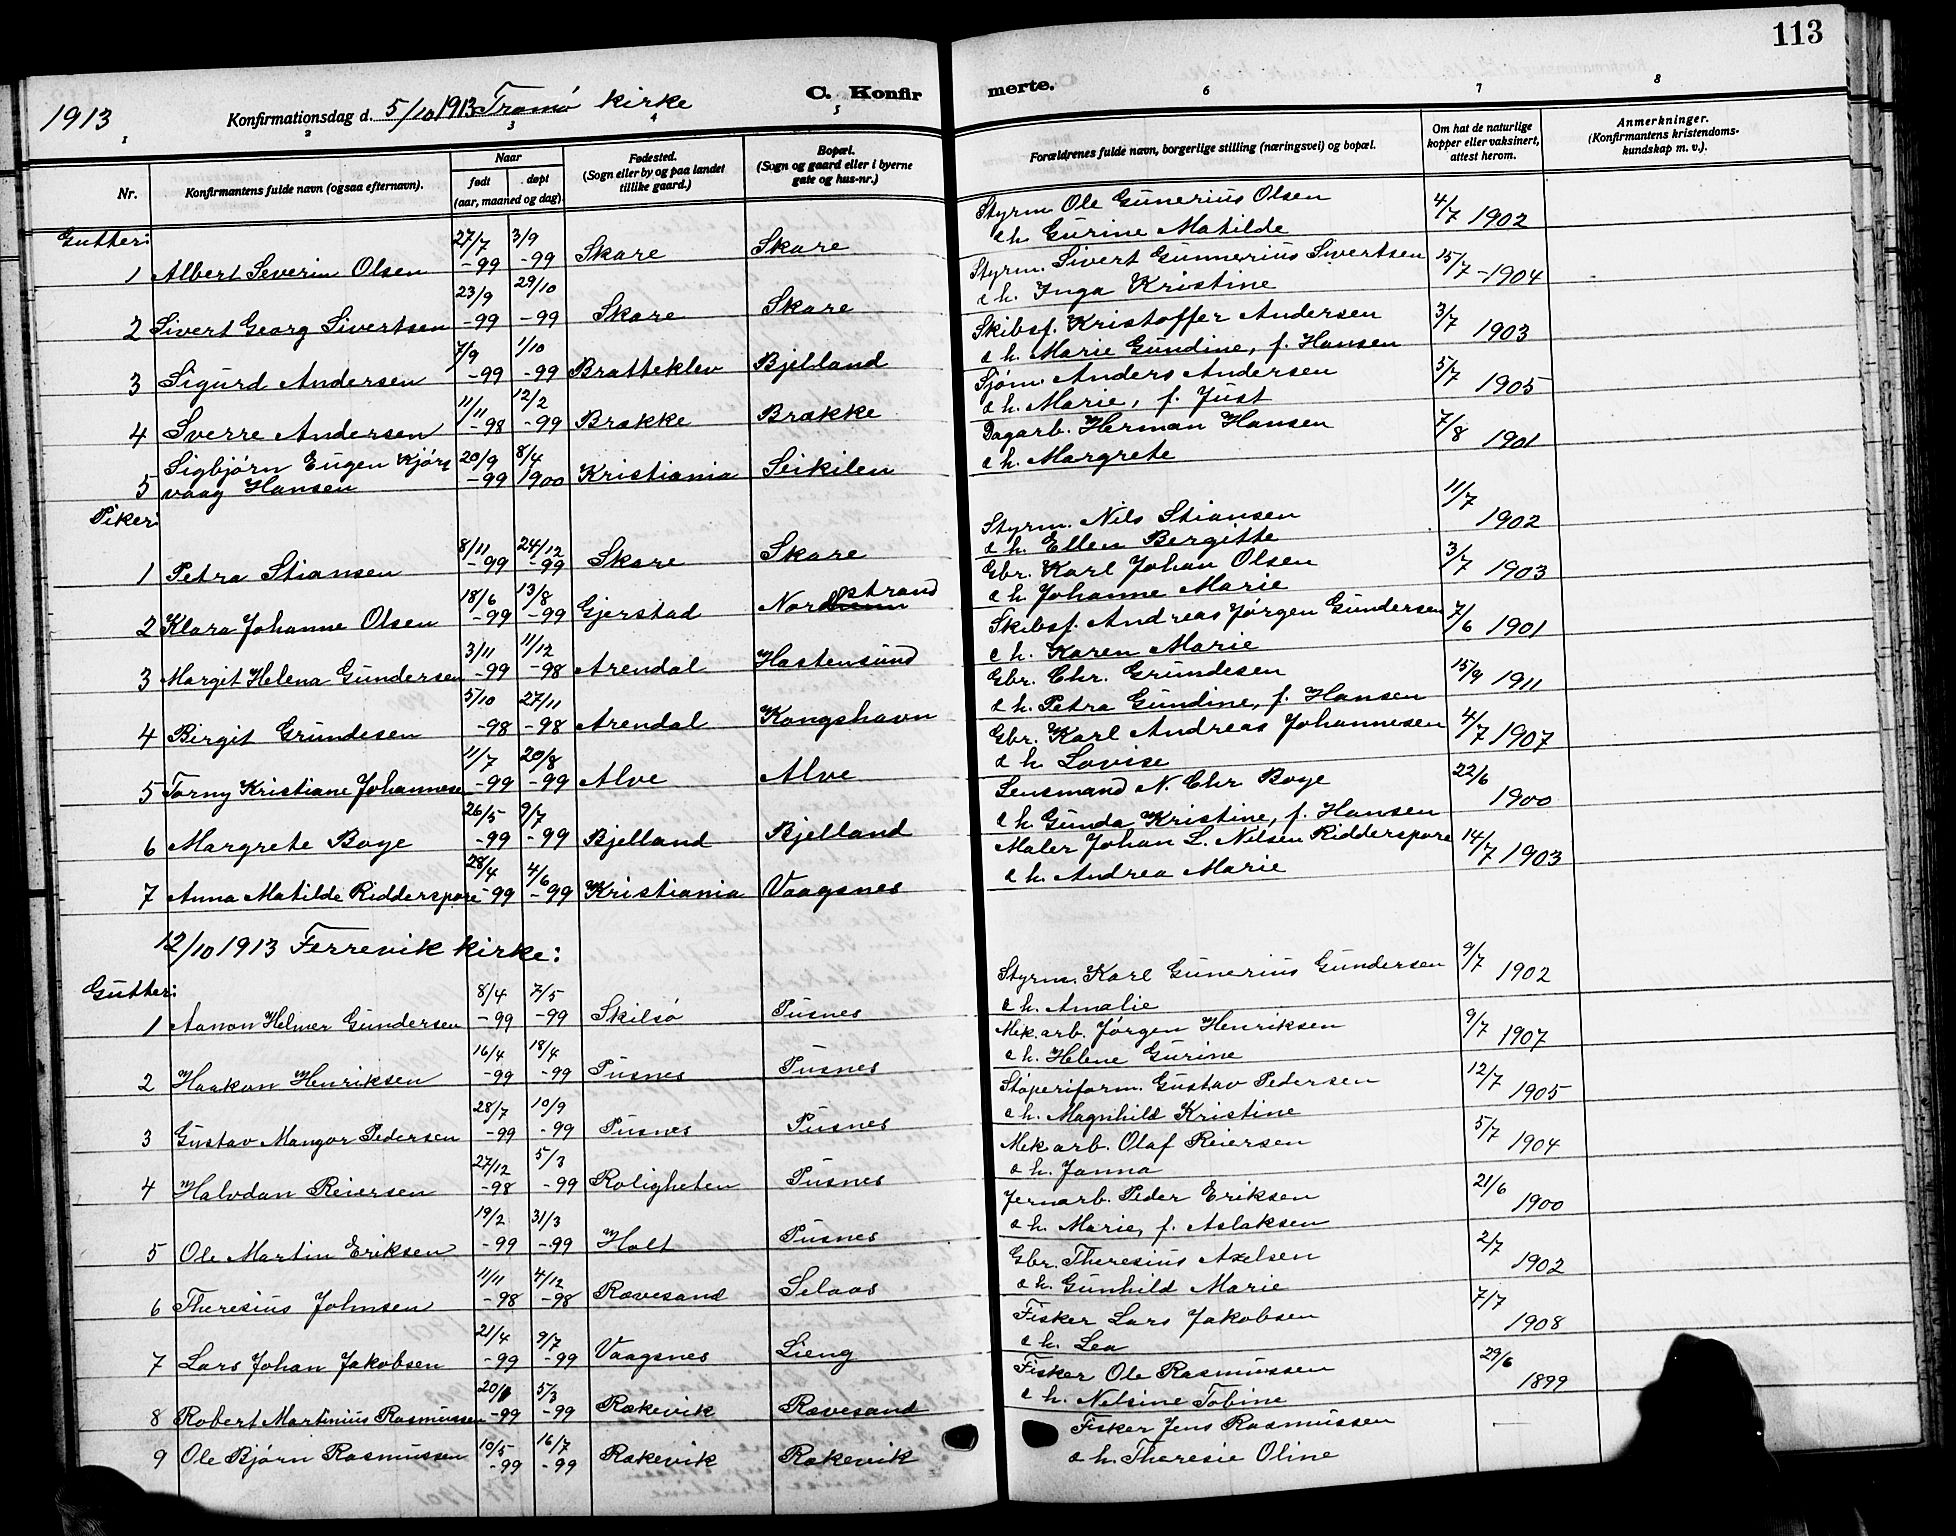 113
1913 Konfirmationsdag d. 5/10 1913 Tromø kirke C. Konfirmerte.
1 2 3 4 5 6 7 8
Nr.
Konfirmantens fulde navn (ogsaa efternavn).
Naar
født døpt
(aar, maaned og dag)
Fødested.
(Sogn eller by og paa landet
tillike gaard.)
Bopæl.
(Sogn og gaard eller i byerne
gate og hus-nr.)
Forældrenes fulde navn, borgerlige stilling (næringsvei) og bopæl.
Om hat de naturlige
kopper eller vaksinert,
attest herom.
Anmerkninger.
(Konfirmantens kristendoms-
kundskap m. v.).
Gutter:
1 Albert Severin Olsen 27/7 -99 3/9 -99 Skare Skare Styrm. Ole Gunerius Olsen
& h. Gurine Matilde 4/7 1902
2 Sivert Georg Sivertsen 23/9 -99 29/10 -99 Skare Skare Styrm. Sivert Gunnerius Sivertsen
& h. Inga Kristine 15/7 -1904
3 Sigurd Andersen 7/9 -99 1/10 -99 Bratteklev Bjelland Skibsf. Kristoffer Andersen
& h. Marie Gundine, f. Hansen 3/7 1903
4 Sverre Andersen 11/11 -98 12/2 -99 Brække Brække Sjøm. Anders Andersen
& h. Marie, f. Just 5/7 1905
Sigbjørn Eugen Kjørs
5 vaag Hansen 20/9 -99 8/4 1900 Kristiania Seikilen Dagarb. Herman Hansen
& h. Margrete 7/8 1901
Piker:
1 Petra Stiansen 8/11 -99 24/12 -99 Skare Skare Styrm. Nils Stiansen
& h. Ellen Bergitte 11/7 1902
2 Klara Johanne Olsen 18/6 -99 13/8 -99 Gjerstad Nordstrand Gbr. Karl Johan Olsen
& h. Johanne Marie 3/7 1903
3 Margit Helena Gundersen 3/11 -99 11/12 -98 Arendal Hastensund Skibsf. Andreas Jørgen Gundersen
& h. Karen Marie 7/6 1901
4 Birgit Grundesen 5/10 -98 27/11 -98 Arendal Kongshavn Gbr. Chr. Grundesen
& h. Petra Gundine, f. Hansen 15/9 1911
5 Torny Kristiane Johannesen 11/7 -99 20/8 -99 Alve Alve Gbr. Karl Andreas Johannesen
& h Lovise 4/7 1907
6 Margrete Boye 26/5 -99 9/7 -99 Bjelland Bjelland Lensmand N. Chr Boye
& h. Gunda Kristine, f. Hansen 22/6 1900
7 Anna Matilde Ridderspore 28/4 -99 4/6 -99 Kristiania Vaagsnes Maler Johan L. Nilsen Ridderspore
& h. Andrea Marie 14/7 1903
12/10 1913 Færevik kirke:
Gutter:
1 Aanon Helmer Gundersen 8/4 -99 7/5 -99 Skilsø Pusnes Styrm. Karl Gunerius Gundersen
& h. Amalie 9/7 1902
2 Haakon Henriksen 16/4 -99 18/4 -99 Pusnes Pusnes Mek. arb. Jørgen Henriksen
& h. Helene Gurine 9/7 1907
3 Gustav Mangor Pedersen 28/7 -99 10/9 -99 Pusnes Pusnes Støperiform. Gustav Pedersen
& h. Magnhild Kristine 12/7 1905
4 Halvdan Reiersen 27/12 -98 5/3 -99 Roligheten Pusnes Mek arb. Olaf Reiersen
& h. Janna 5/7 1904
5 Ole Martin Eriksen 19/2 -99 31/3 -99 Holt Pusnes Jernarb. Peder Eriksen
& h. Marie, f. Aslaksen 21/6 1900
6 Theresius Johnsen 11/11 -98 4/12 -98 Rævesand Selaas Gbr. Theresius Axelsen
& h. Gunhild Marie 2/7 1902
7 Lars Johan Jakobsen 21/4 -99 9/7 -99 Vaagsnes Lieng Fisker Lars Jakobsen
& h. Lea 7/7 1908
8 Robert Martinius Rasmussen 20/1 -99 5/3 -99 Rækevik Rævesand Fisker Ole Rasmussen
& h. Nelsine Tobine 29/6 1899
9 Ole Bjørn Rasmussen 10/5 -99 16/7 -99 Rækevik Rækevik Fisker Jens Rasmussen
& h. Theresie Oline -